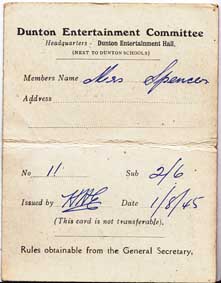 Dunton Entertainment Committee
Headquarters - Dunton Entertainment Hall.
(NEXT TO DUNTON SCHOOLS)
Members Name Mrs Spencer
Address
No 11 Sub 2/6
Issued by Date 1/8/45
(This card is not transferable).
Rules obtainable from the General Secretary,